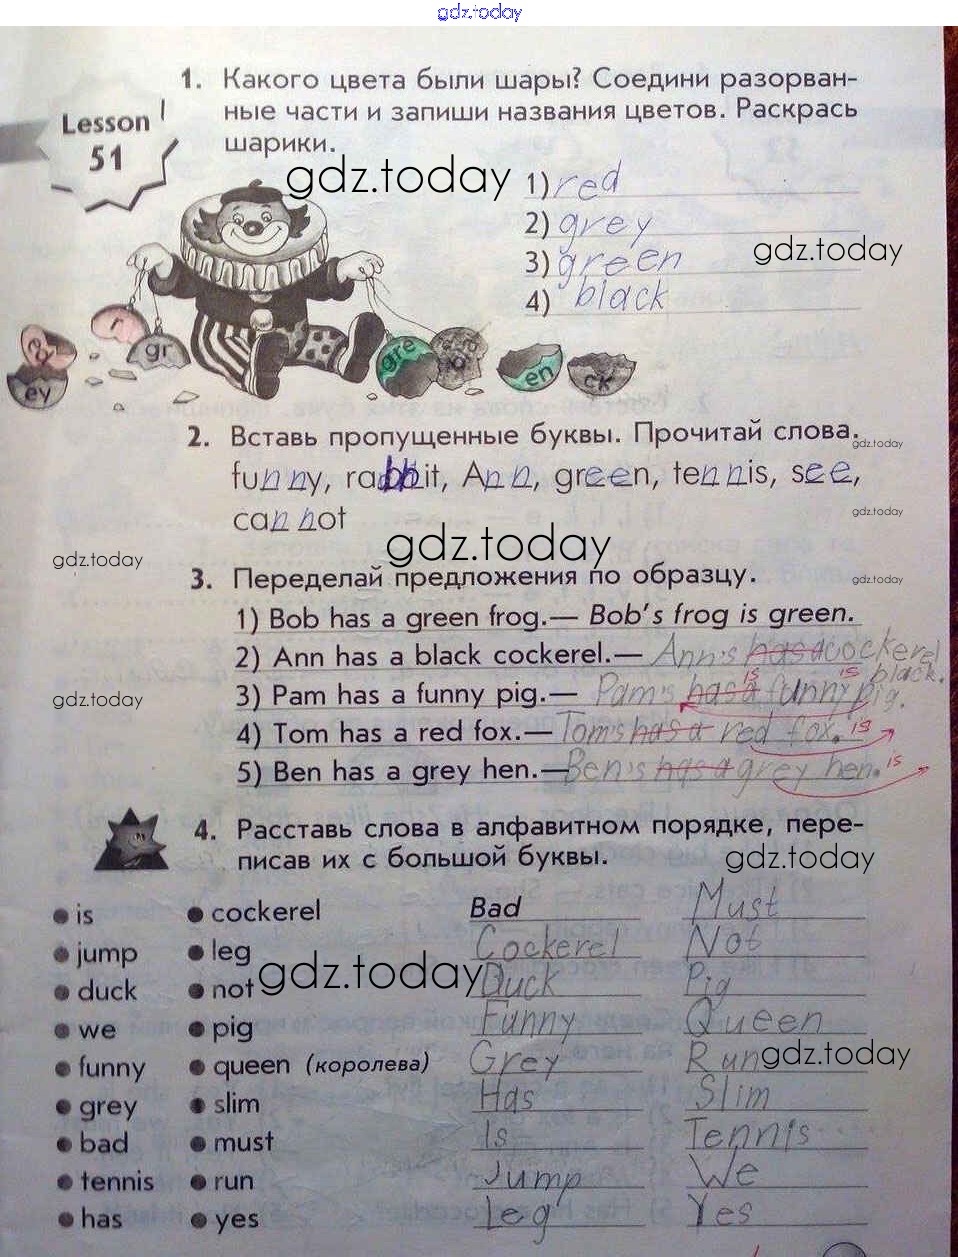 gdz.today
1. Какого цвета были шары? Соедини разорван-
ные части и запиши названия цветов. Раскрась
шарики.
Lesson
51
gdz.today
1) red
2) grey
gdz.today
3) green
4) black
r
gr
gre
ed
ey
en
ck
2. Вставь пропущенные буквы. Прочитай слова.
gdz.today
funny, rabbit, Ann, green, tennis, see,
cannot
gdz.today
gdz.today
gdz.today
3. Переделай предложения по образцу.
gdz.today
1) Bob has a green frog.— Bob's frog is green.
2) Ann has a black cockerel.— Ann's has a cockerel
is black.
3) Pam has a funny pig.— Pam's has a funny pig.
is
gdz.today
4) Tom has a red fox.— Tom's has a red fox. is
5) Ben has a grey hen.— Ben's has a grey hen. is
4. Расставь слова в алфавитном порядке, пере-
писав их с большой буквы.
gdz.today
is cockerel Bad Must
jump leg Cockerel Not
gdz.today
duck not Duck Pig
we pig Funny Queen
funny queen (королева) Grey Run
gdz.today
grey slim Has Slim
bad must Is Tennis
tennis run Jump We
has yes Leg Yes